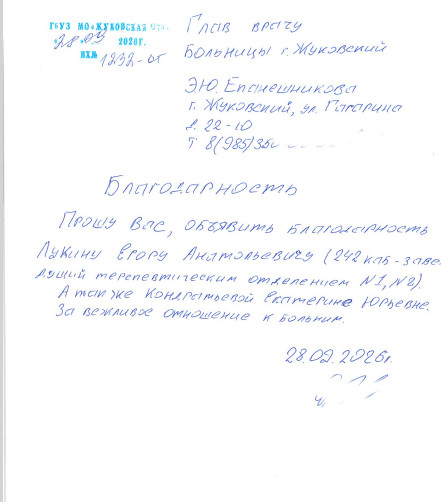 ГБУЗ МО «ЖУКОВСКАЯ
28.09 2026г.
ВХ№ 1232-от
Глав врачу
Больницы г. Жуковский
Э.Ю. Епанешникова
г. Жуковский, ул. Гагарина
д. 22-10
т 8(985)35
Благодарность
Прошу Вас, объявить благодарность
Лукину Егору Анатольевичу (242 каб-заве.
дущий терепевтическим отделением N1, N2).
А так же Кондратьевой Екатерине Юрьевне.
За вежливое отношение к больным.
28.09.2026г.